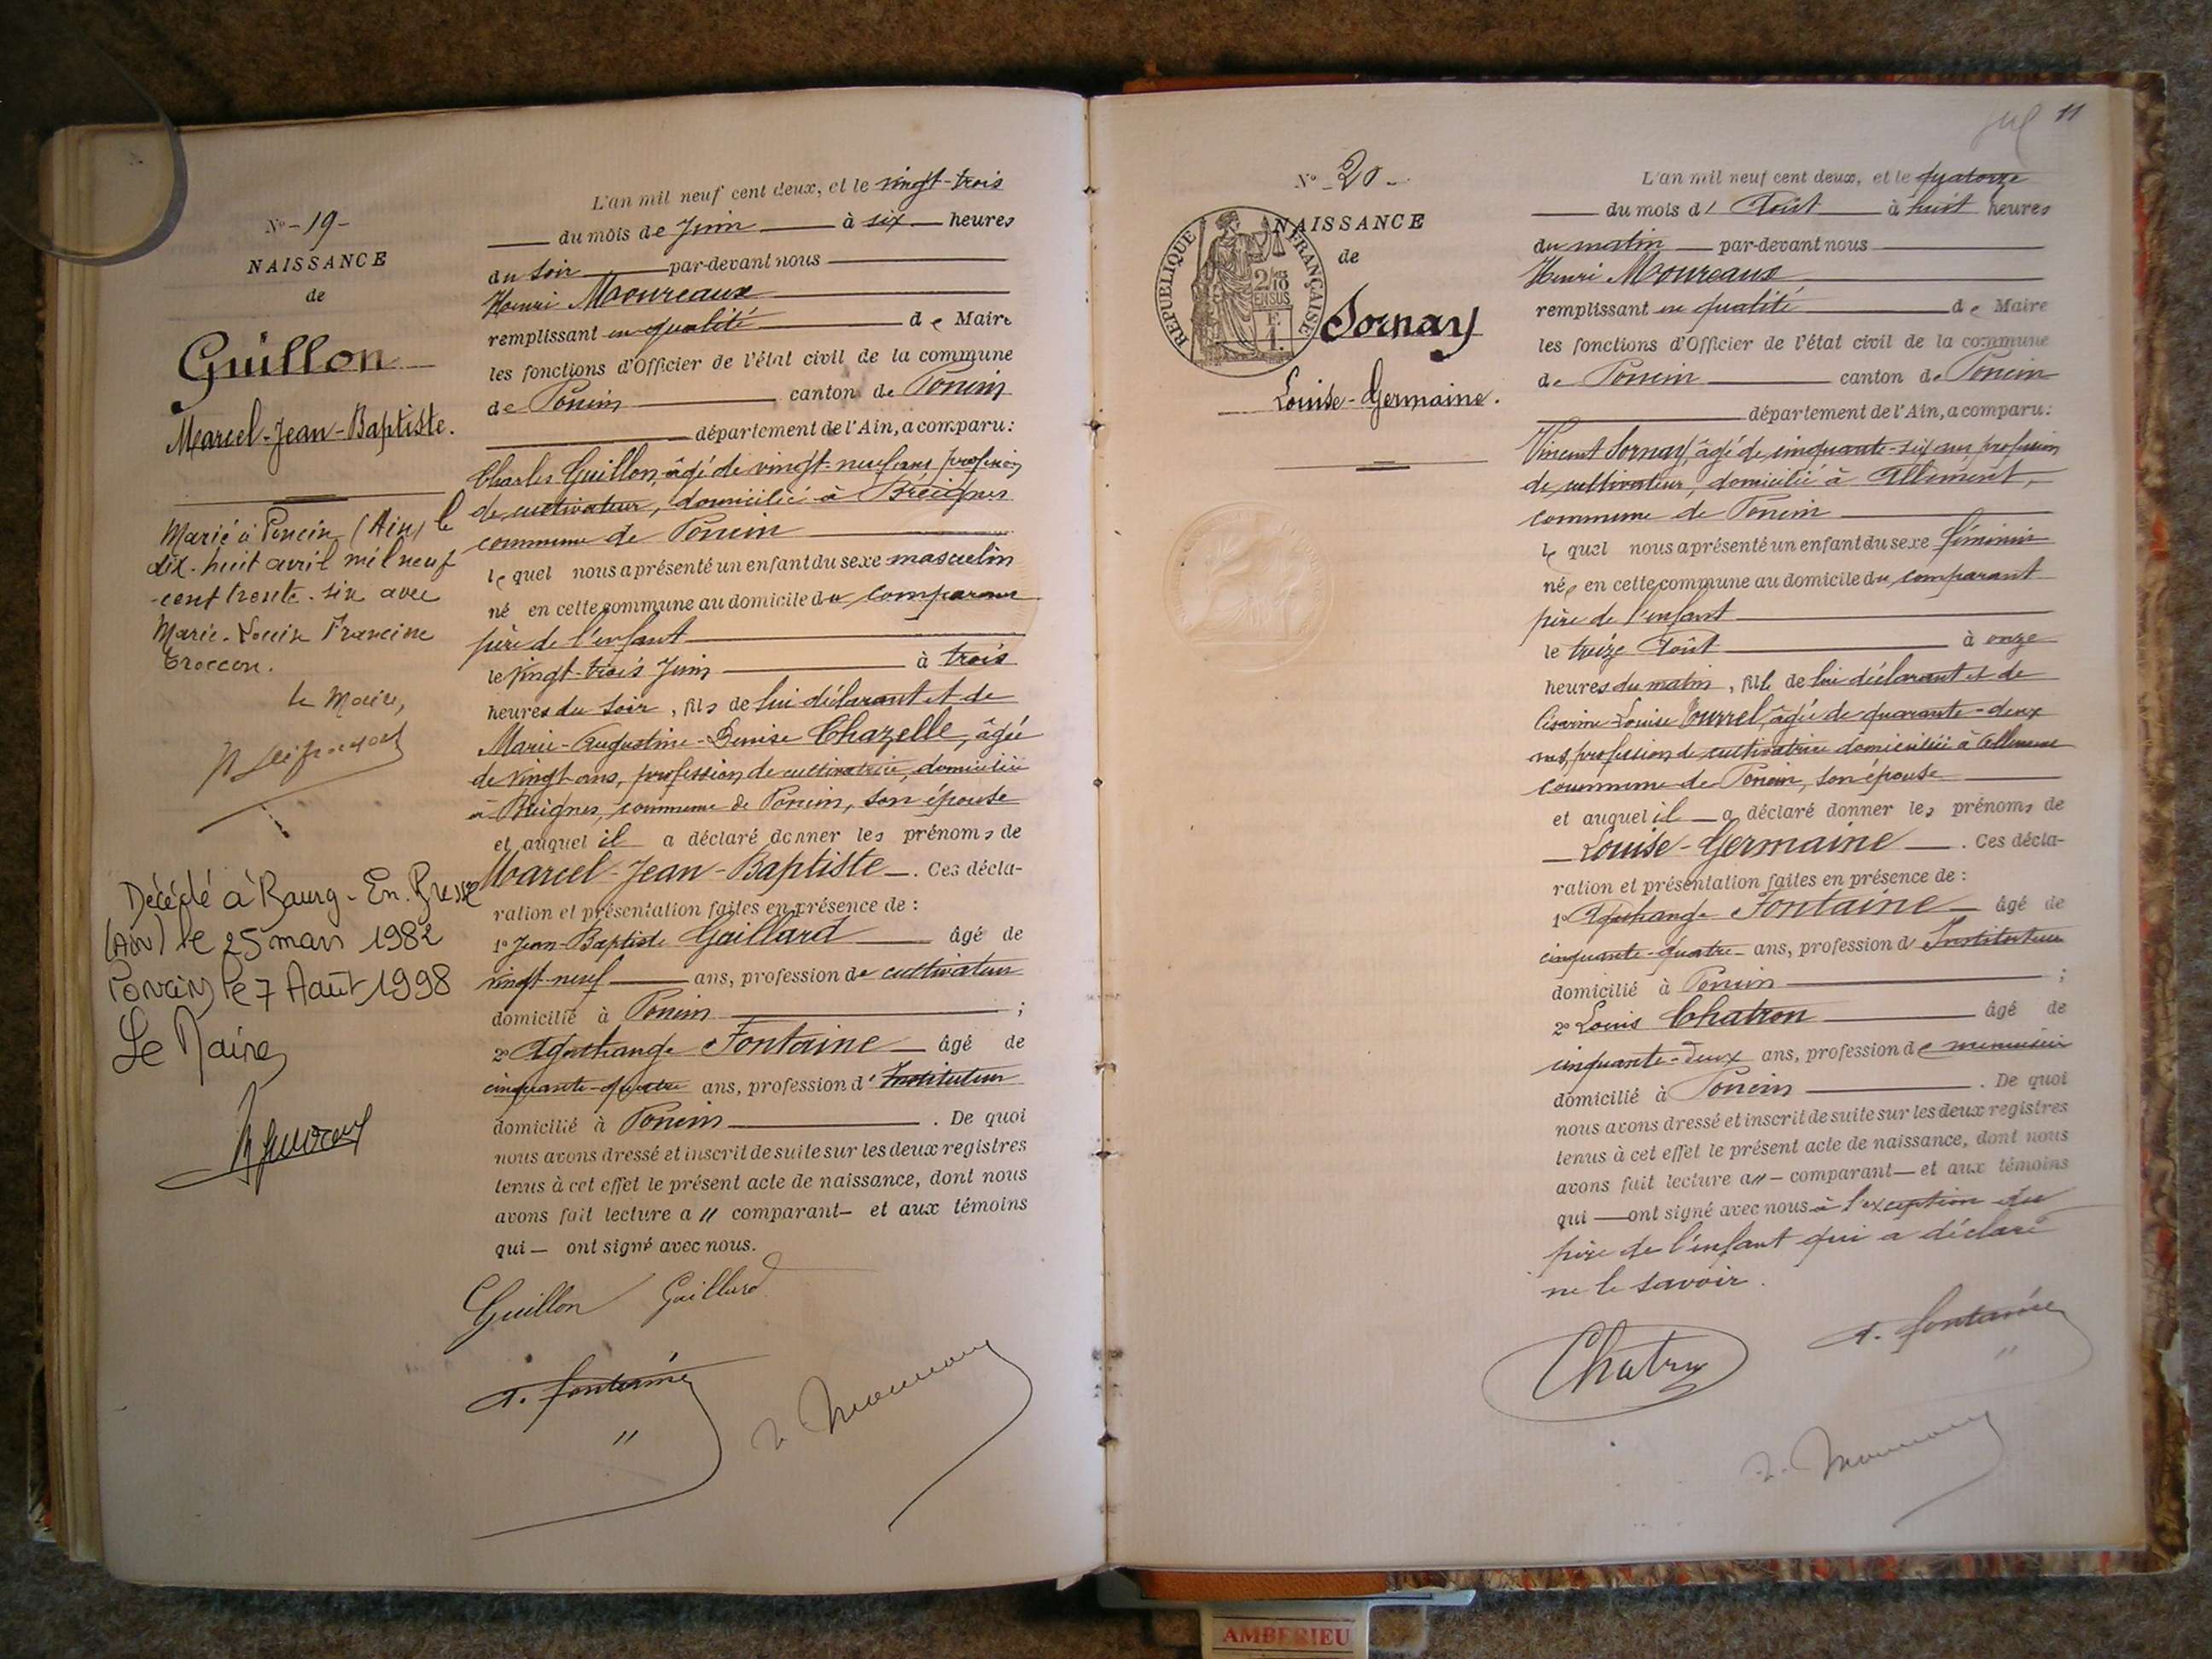 N° - 19 -
NAISSANCE
de
Guillon
Marcel-Jean-Baptiste.
Marié à Poncin (Ain) le
dix-huit avril mil neuf
cent trente-six avec
Marie-Louise Francine
Troccon.
Le Maire,
Décédé à Bourg-En-Bresse
(Ain) le 25 mars 1982
Poncin, le 7 Août 1998
Le Maire,
L'an mil neuf cent deux, et le vingt-trois
du mois de Juin à six heures
du soir par-devant nous
Henri Moureaux
remplissant en qualité de Maire
les fonctions d'Officier de l'état civil de la commune
de Poncin canton de Poncin
département de l'Ain, a comparu:
Charles Guillon, âgé de vingt-neuf ans, profession
de cultivateur, domicilié à Breignes
commune de Poncin
lequel nous a présenté un enfant du sexe masculin
né en cette commune au domicile du comparant
père de l'enfant
le vingt-trois Juin à trois
heures du soir, fils de lui déclarant et de
Marie-Augustine-Denise Chazelle, âgée
de vingt ans, profession de cultivatrice, domiciliée
à Breignes, commune de Poncin, son épouse
et auquel il a déclaré donner les prénoms de
Marcel-Jean-Baptiste. Ces décla-
ration et présentation faites en présence de :
1° Jean-Baptiste Gaillard âgé de
vingt-neuf ans, profession de cultivateur
domicilié à Poncin ;
2° Agathange Fontaine âgé de
cinquante-quatre ans, profession d'Instituteur
domicilié à Poncin . De quoi
nous avons dressé et inscrit de suite sur les deux registres
tenus à cet effet le présent acte de naissance, dont nous
avons fait lecture a " comparant - et aux témoins
qui - ont signé avec nous.
Guillon Gaillard
A. Fontaine
H. Moureaux
11
N° - 20 -
NAISSANCE
de
REPUBLIQUE FRANÇAISE
2/10
EN SUS
F.
1.
Sornay
Louise-Germaine.
L'an mil neuf cent deux, et le quatorze
du mois d' Août à huit heures
du matin par-devant nous
Henri Moureaux
remplissant en qualité de Maire
les fonctions d'Officier de l'état civil de la commune
de Poncin canton de Poncin
département de l'Ain, a comparu:
Vincent Sornay, âgé de cinquante-six ans, profession
de cultivateur, domicilié à Allement,
commune de Poncin
lequel nous a présenté un enfant du sexe féminin
née en cette commune au domicile du comparant
père de l'enfant
le treize Août à onze
heures du matin, fille de lui déclarant et de
Césarine-Louise Tournel, âgée de quarante-deux
ans, profession de cultivatrice domiciliée à Allement
commune de Poncin, son épouse
et auquel il a déclaré donner les prénoms de
Louise-Germaine . Ces décla-
ration et présentation faites en présence de :
1° Agathange Fontaine âgé de
cinquante-quatre ans, profession d'Instituteur
domicilié à Poncin ;
2° Louis Chatron âgé de
cinquante-deux ans, profession de menuisier
domicilié à Poncin . De quoi
nous avons dressé et inscrit de suite sur les deux registres
tenus à cet effet le présent acte de naissance, dont nous
avons fait lecture a " - comparant - et aux témoins
qui - ont signé avec nous à l'exception du
père de l'enfant qui a déclaré
ne le savoir.
Chatron A. Fontaine
H. Moureaux
AMBERIEU